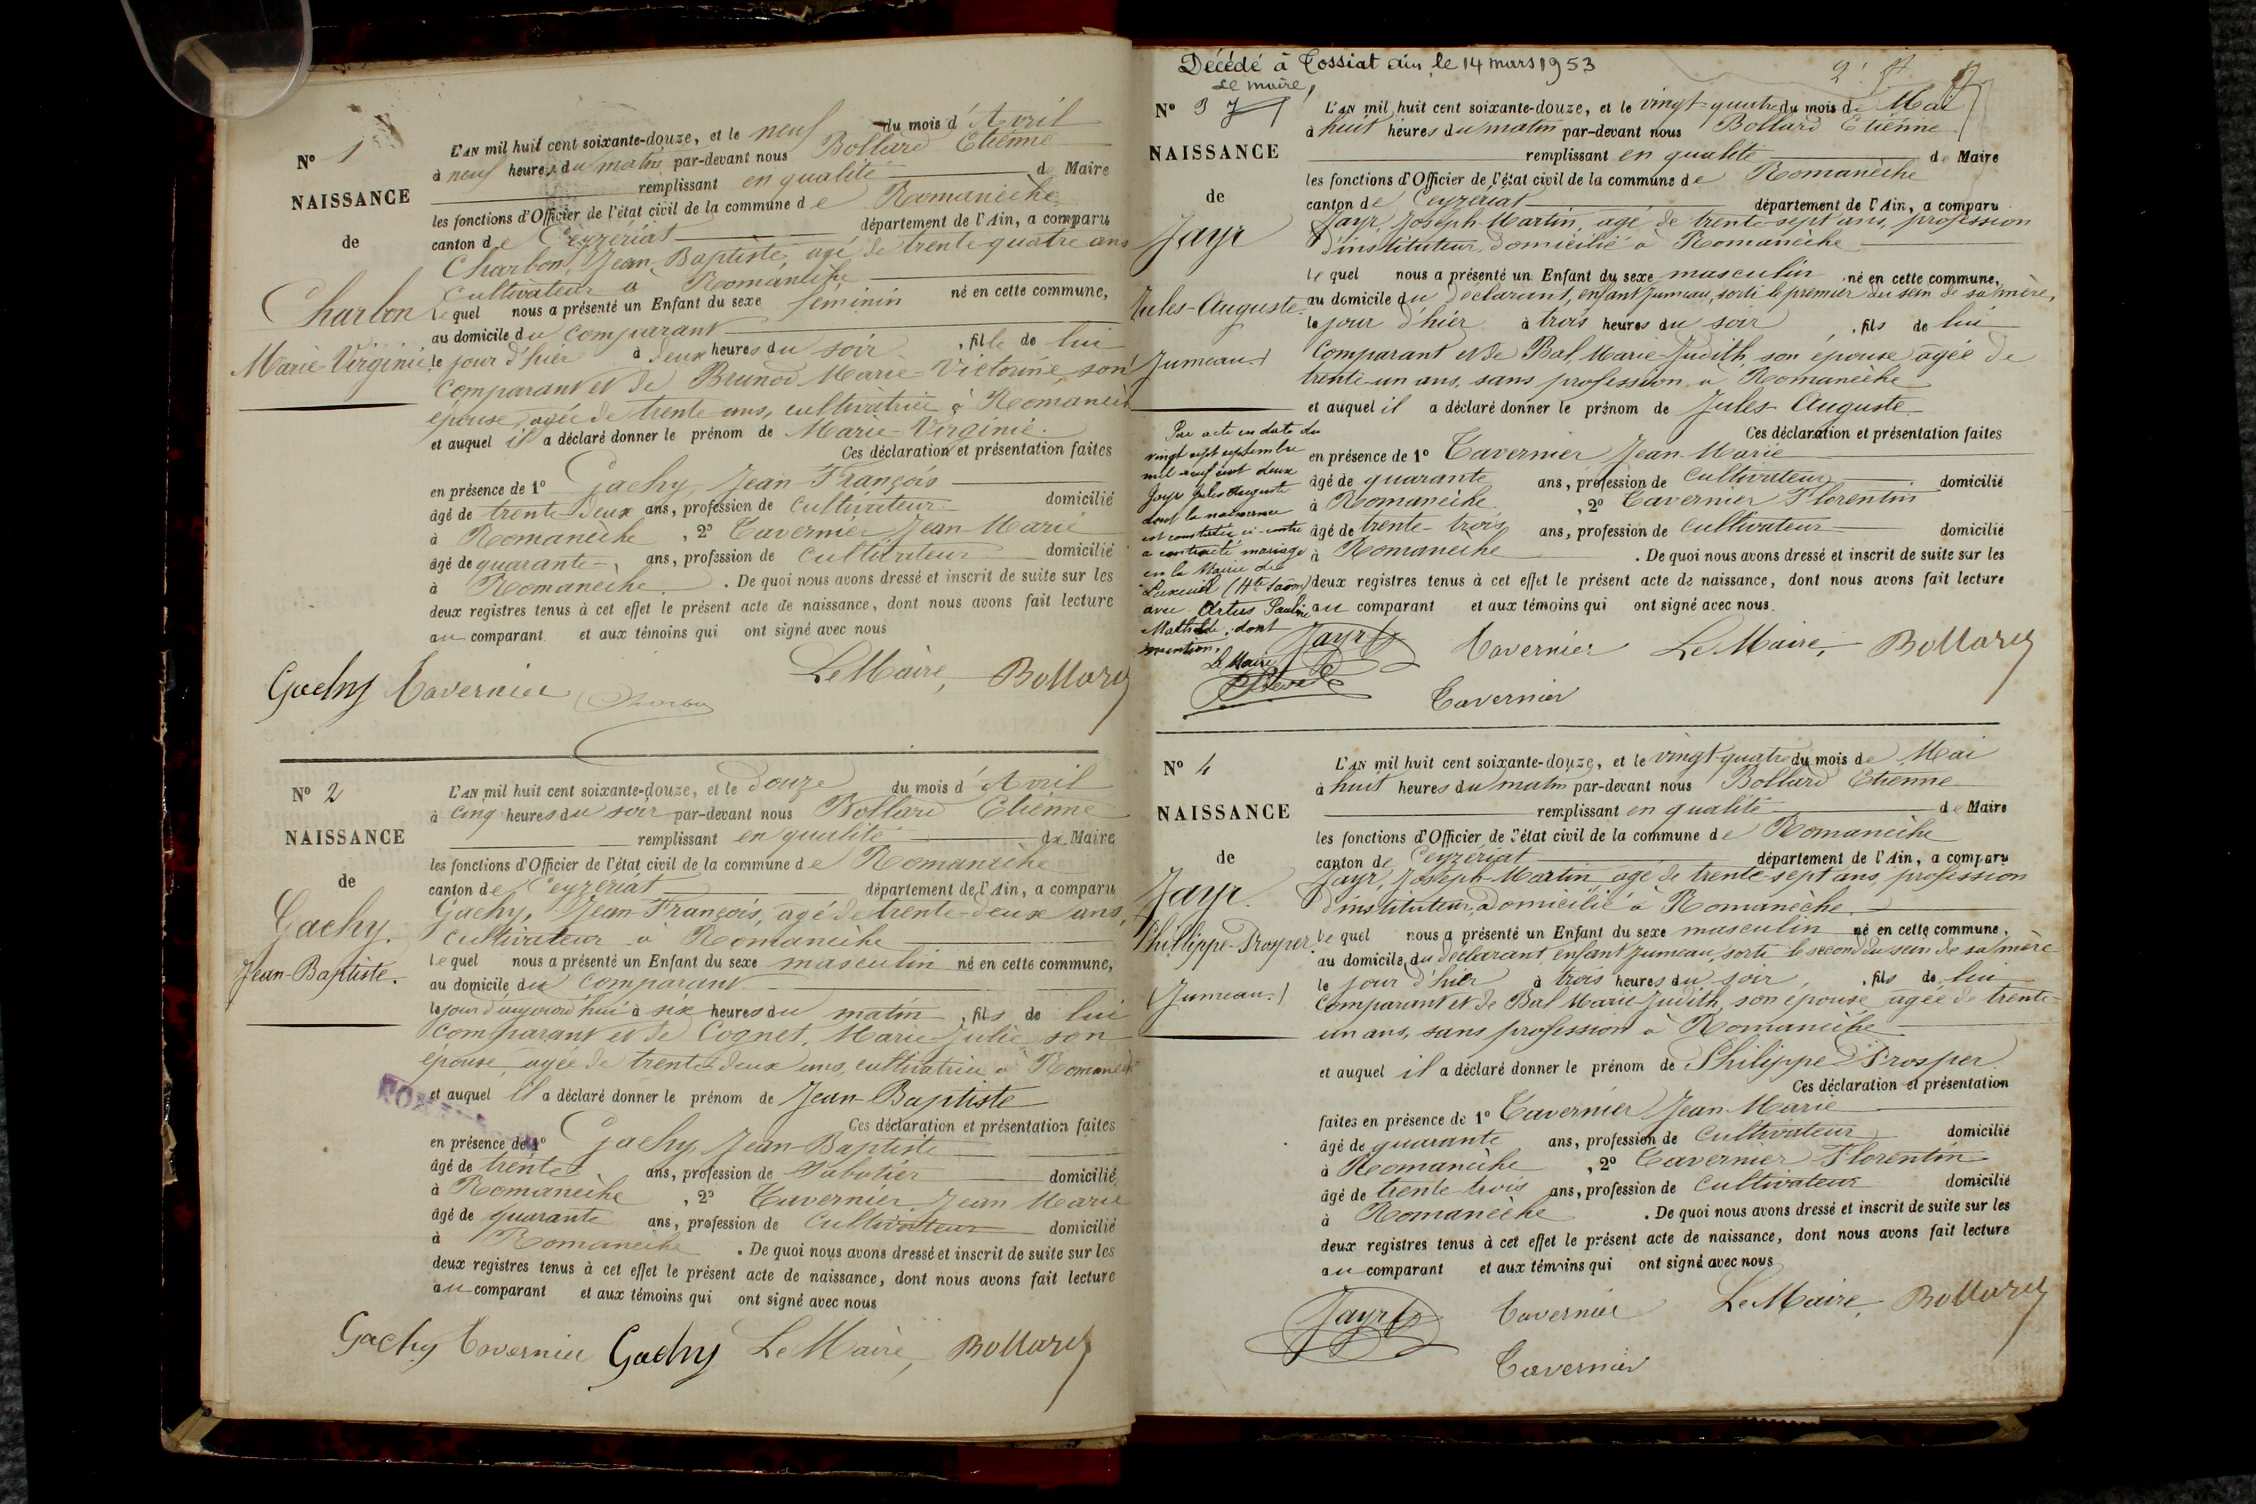 N° 1
NAISSANCE
de
Charbon
Marie Virginie
L'AN mil huit cent soixante-douze, et le neuf du mois d'Avril
à neuf heures du matin par-devant nous Bollard Etienne
remplissant en qualité de Maire
les fonctions d'Officier de l'état civil de la commune de Romanèche
canton de Ceyzériat département de l'Ain, a comparu
Charbon, Jean-Baptiste, agé de trente quatre ans
cultivateur à Romanèche
lequel nous a présenté un Enfant du sexe féminin né en cette commune,
au domicile du comparant
le jour d'hier à deux heures du soir, fille de lui
comparant et de Brunod Marie-Victorine son
épouse, agée de trente ans, cultivatrice à Romanèch
et auquel il a déclaré donner le prénom de Marie-Virginie.
Ces déclaration et présentation faites
en présence de 1° Gachy, Jean François
âgé de trente-deux ans, profession de cultivateur domicilié
à Romanèche, 2° Tavernier, Jean-Marie
âgé de quarante ans, profession de cultivateur domicilié
à Romanèche. De quoi nous avons dressé et inscrit de suite sur les
deux registres tenus à cet effet le présent acte de naissance, dont nous avons fait lecture
au comparant et aux témoins qui ont signé avec nous
Gachy Tavernier Charbon Le Maire, Bollard
N° 2
NAISSANCE
de
Gachy.
Jean-Baptiste.
L'AN mil huit cent soixante-douze, et le douze du mois d'Avril
à cinq heures du soir par-devant nous Bollard Etienne
remplissant en qualité de Maire
les fonctions d'Officier de l'état civil de la commune de Romanèche
canton de Ceyzériat département de l'Ain, a comparu
Gachy, Jean-François, agé de trente-deux ans,
cultivateur à Romanèche
lequel nous a présenté un Enfant du sexe masculin né en cette commune,
au domicile du comparant
le jour d'aujourd'hui à six heures du matin, fils de lui
comparant et de Cognet, Marie-Julie son
épouse, agée de trente deux ans, cultivatrice à Romanèch
et auquel il a déclaré donner le prénom de Jean-Baptiste
Ces déclaration et présentation faites
en présence de 1° Gachy Jean-Baptiste
âgé de trente ans, profession de Sabotier domicilié
à Romanèche, 2° Tavernier, Jean Marie
âgé de quarante ans, profession de cultivateur domicilié
à Romanèche. De quoi nous avons dressé et inscrit de suite sur les
deux registres tenus à cet effet le présent acte de naissance, dont nous avons fait lecture
au comparant et aux témoins qui ont signé avec nous
Gachy Tavernier Gachy Le Maire, Bollard
Décédé à Tossiat ain, le 14 mars 1953
Le maire,
N° 3
NAISSANCE
de
Jayr
Jules-Auguste
(Jumeau.)
Par acte en date du
vingt sept septembre
mil neuf cent deux
Jayr Jules Auguste
dont la naissance
est constatée ci-contre
a contracté mariage
en la Mairie de
Luxeuil (Hte Saône)
avec Artus Pauline
Mathilde, dont
mention.
Le Maire
L'AN mil huit cent soixante-douze, et le vingt-quatre du mois de Mai
à huit heures du matin par-devant nous Bollard Etienne
remplissant en qualité de Maire
les fonctions d'Officier de l'état civil de la commune de Romanèche
canton de Ceyzériat département de l'Ain, a comparu
Jayr, Joseph-Martin, agé de trente-sept ans, profession
d'instituteur, domicilié à Romanèche
lequel nous a présenté un Enfant du sexe masculin né en cette commune,
au domicile du déclarant, enfant jumeau, sorti le premier du sein de sa mère,
le jour d'hier à trois heures du soir, fils de lui
comparant et de Bal, Marie-Judith, son épouse agée de
trente-un ans, sans profession, à Romanèche
et auquel il a déclaré donner le prénom de Jules Auguste
Ces déclaration et présentation faites
en présence de 1° Tavernier Jean-Marie
âgé de quarante ans, profession de cultivateur domicilié
à Romanèche, 2° Tavernier Florentin
âgé de trente-trois ans, profession de cultivateur domicilié
à Romanèche. De quoi nous avons dressé et inscrit de suite sur les
deux registres tenus à cet effet le présent acte de naissance, dont nous avons fait lecture
au comparant et aux témoins qui ont signé avec nous.
Jayr Tavernier Le Maire, Bollard
Tavernier
N° 4
NAISSANCE
de
Jayr.
Philippe-Prosper.
(Jumeau.)
L'AN mil huit cent soixante-douze, et le vingt-quatre du mois de Mai
à huit heures du matin par-devant nous Bollard Etienne
remplissant en qualité de Maire
les fonctions d'Officier de l'état civil de la commune de Romanèche
canton de Ceyzériat département de l'Ain, a comparu
Jayr, Joseph-Martin agé de trente-sept ans, profession
d'instituteur, domicilié à Romanèche.
lequel nous a présenté un Enfant du sexe masculin né en cette commune,
au domicile du déclarant, enfant jumeau, sorti le second du sein de sa mère
le jour d'hier à trois heures du soir, fils de lui
comparant et de Bal Marie Judith, son épouse, agée de trente-
un ans, sans profession à Romanèche
et auquel il a déclaré donner le prénom de Philippe Prosper
Ces déclaration et présentation
faites en présence de 1° Tavernier Jean-Marie
âgé de quarante ans, profession de cultivateur domicilié
à Romanèche, 2° Tavernier Florentin
âgé de trente trois ans, profession de cultivateur domicilié
à Romanèche. De quoi nous avons dressé et inscrit de suite sur les
deux registres tenus à cet effet le présent acte de naissance, dont nous avons fait lecture
au comparant et aux témoins qui ont signé avec nous
Jayr Tavernier Le Maire, Bollard
Tavernier